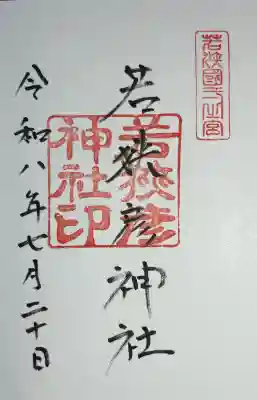 若狭國一之宮
若狭彦神社
若狭彦
神社印
令和八年七月二十日